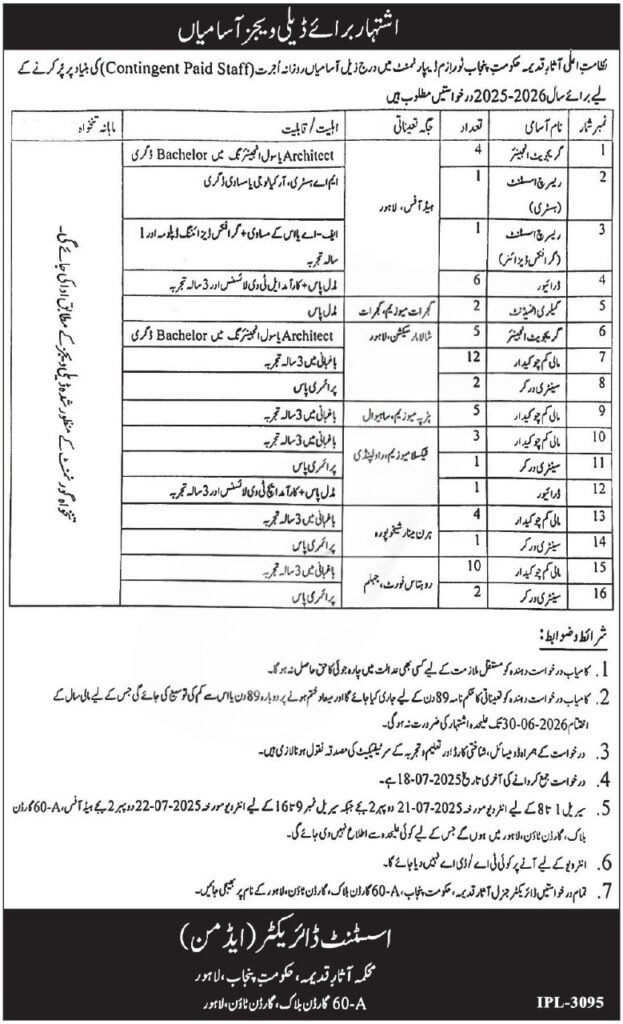 اشتہار برائے ڈیلی ویجز آسامیاں
نظامت اعلیٰ آثارِ قدیمہ حکومتِ پنجاب ٹورازم ڈیپارٹمنٹ میں درج ذیل آسامیاں روزانہ اُجرت (Contingent Paid Staff) کی بنیاد پر پُر کرنے کے
لیے برائے سال 2026-2025 درخواستیں مطلوب ہیں
نمبر شمار نام آسامی تعداد جگہ تعیناتی اہلیت / قابلیت ماہانہ تنخواہ
1 گریجویٹ انجینئر 4 ہیڈ آفس، لاہور Architect یا سول انجینئرنگ میں Bachelor ڈگری
2 ریسرچ اسسٹنٹ (ہسٹری) 1 ایم اے ہسٹری، آرکیالوجی یا مساوی ڈگری
3 ریسرچ اسسٹنٹ (گرافکس ڈیزائنر) 1 ایف-اے یا اس کے مساوی + گرافکس ڈیزائننگ ڈپلومہ اور 1 سالہ تجربہ
4 ڈرائیور 6 مڈل پاس + کارآمد ایل ٹی وی لائسنس اور 3 سالہ تجربہ
5 گیلری اٹینڈنٹ 2 گجرات میوزیم، گجرات مڈل پاس
6 گریجویٹ انجینئر 5 شالامار سیکشن، لاہور Architect یا سول انجینئرنگ میں Bachelor ڈگری
7 مالی کم چوکیدار 12 باغبانی میں 3 سالہ تجربہ
8 سینٹری ورکر 2 پرائمری پاس
9 مالی کم چوکیدار 5 ہڑپہ میوزیم، ساہیوال باغبانی میں 3 سالہ تجربہ
10 مالی کم چوکیدار 3 ٹیکسلا میوزیم، راولپنڈی باغبانی میں 3 سالہ تجربہ
11 سینٹری ورکر 1 پرائمری پاس
12 ڈرائیور 1 مڈل پاس + کارآمد ایچ ٹی وی لائسنس اور 3 سالہ تجربہ
13 مالی کم چوکیدار 4 ہرن مینار شیخوپورہ باغبانی میں 3 سالہ تجربہ
14 سینٹری ورکر 1 پرائمری پاس
15 مالی کم چوکیدار 10 روہتاس فورٹ، جہلم باغبانی میں 3 سالہ تجربہ
16 سینٹری ورکر 2 پرائمری پاس
تنخواہ گورنمنٹ کے منظور شدہ ڈیلی ویجز کے مطابق ادا کی جائے گی۔
شرائط و ضوابط:
1. کامیاب درخواست دہندہ کو مستقل ملازمت کے لیے کسی بھی عدالت میں چارہ جوئی کا حق حاصل نہ ہو گا۔
2. کامیاب درخواست دہندہ کو تعیناتی کا حکم نامہ 89 دن کے لیے جاری کیا جائے گا اور میعاد ختم ہونے پر دوبارہ 89 دن یا اس سے کم کی توسیع کی جائے گی جس کے لیے مالی سال کے
اختتام 30-06-2026 تک علیحدہ اشتہار کی ضرورت نہ ہو گی۔
3. درخواست کے ہمراہ ڈومیسائل، شناختی کارڈ اور تعلیم و تجربہ کے سرٹیفکیٹ کی مصدقہ نقول ہونا لازمی ہیں۔
4. درخواست جمع کروانے کی آخری تاریخ 18-07-2025 ہے۔
5. سیریل 1 تا 8 کے لیے انٹرویو مورخہ 21-07-2025 دوپہر 2 بجے جبکہ سیریل نمبر 9 تا 16 کے لیے انٹرویو مورخہ 22-07-2025 دوپہر 2 بجے ہیڈ آفس، 60-A گارڈن
بلاک، گارڈن ٹاؤن، لاہور میں ہوں گے جس کے لیے کوئی علیحدہ سے اطلاع نہیں دی جائے گی۔
6. انٹرویو کے لیے آنے پر کوئی ٹی اے / ڈی اے نہیں دیا جائے گا۔
7. تمام درخواستیں ڈائریکٹر جنرل آثارِ قدیمہ، حکومتِ پنجاب، 60-A گارڈن بلاک، گارڈن ٹاؤن، لاہور کے نام پر بھیجی جائیں۔
اسسٹنٹ ڈائریکٹر (ایڈمن)
محکمہ آثارِ قدیمہ، حکومتِ پنجاب، لاہور
60-A گارڈن بلاک، گارڈن ٹاؤن، لاہور
IPL-3095